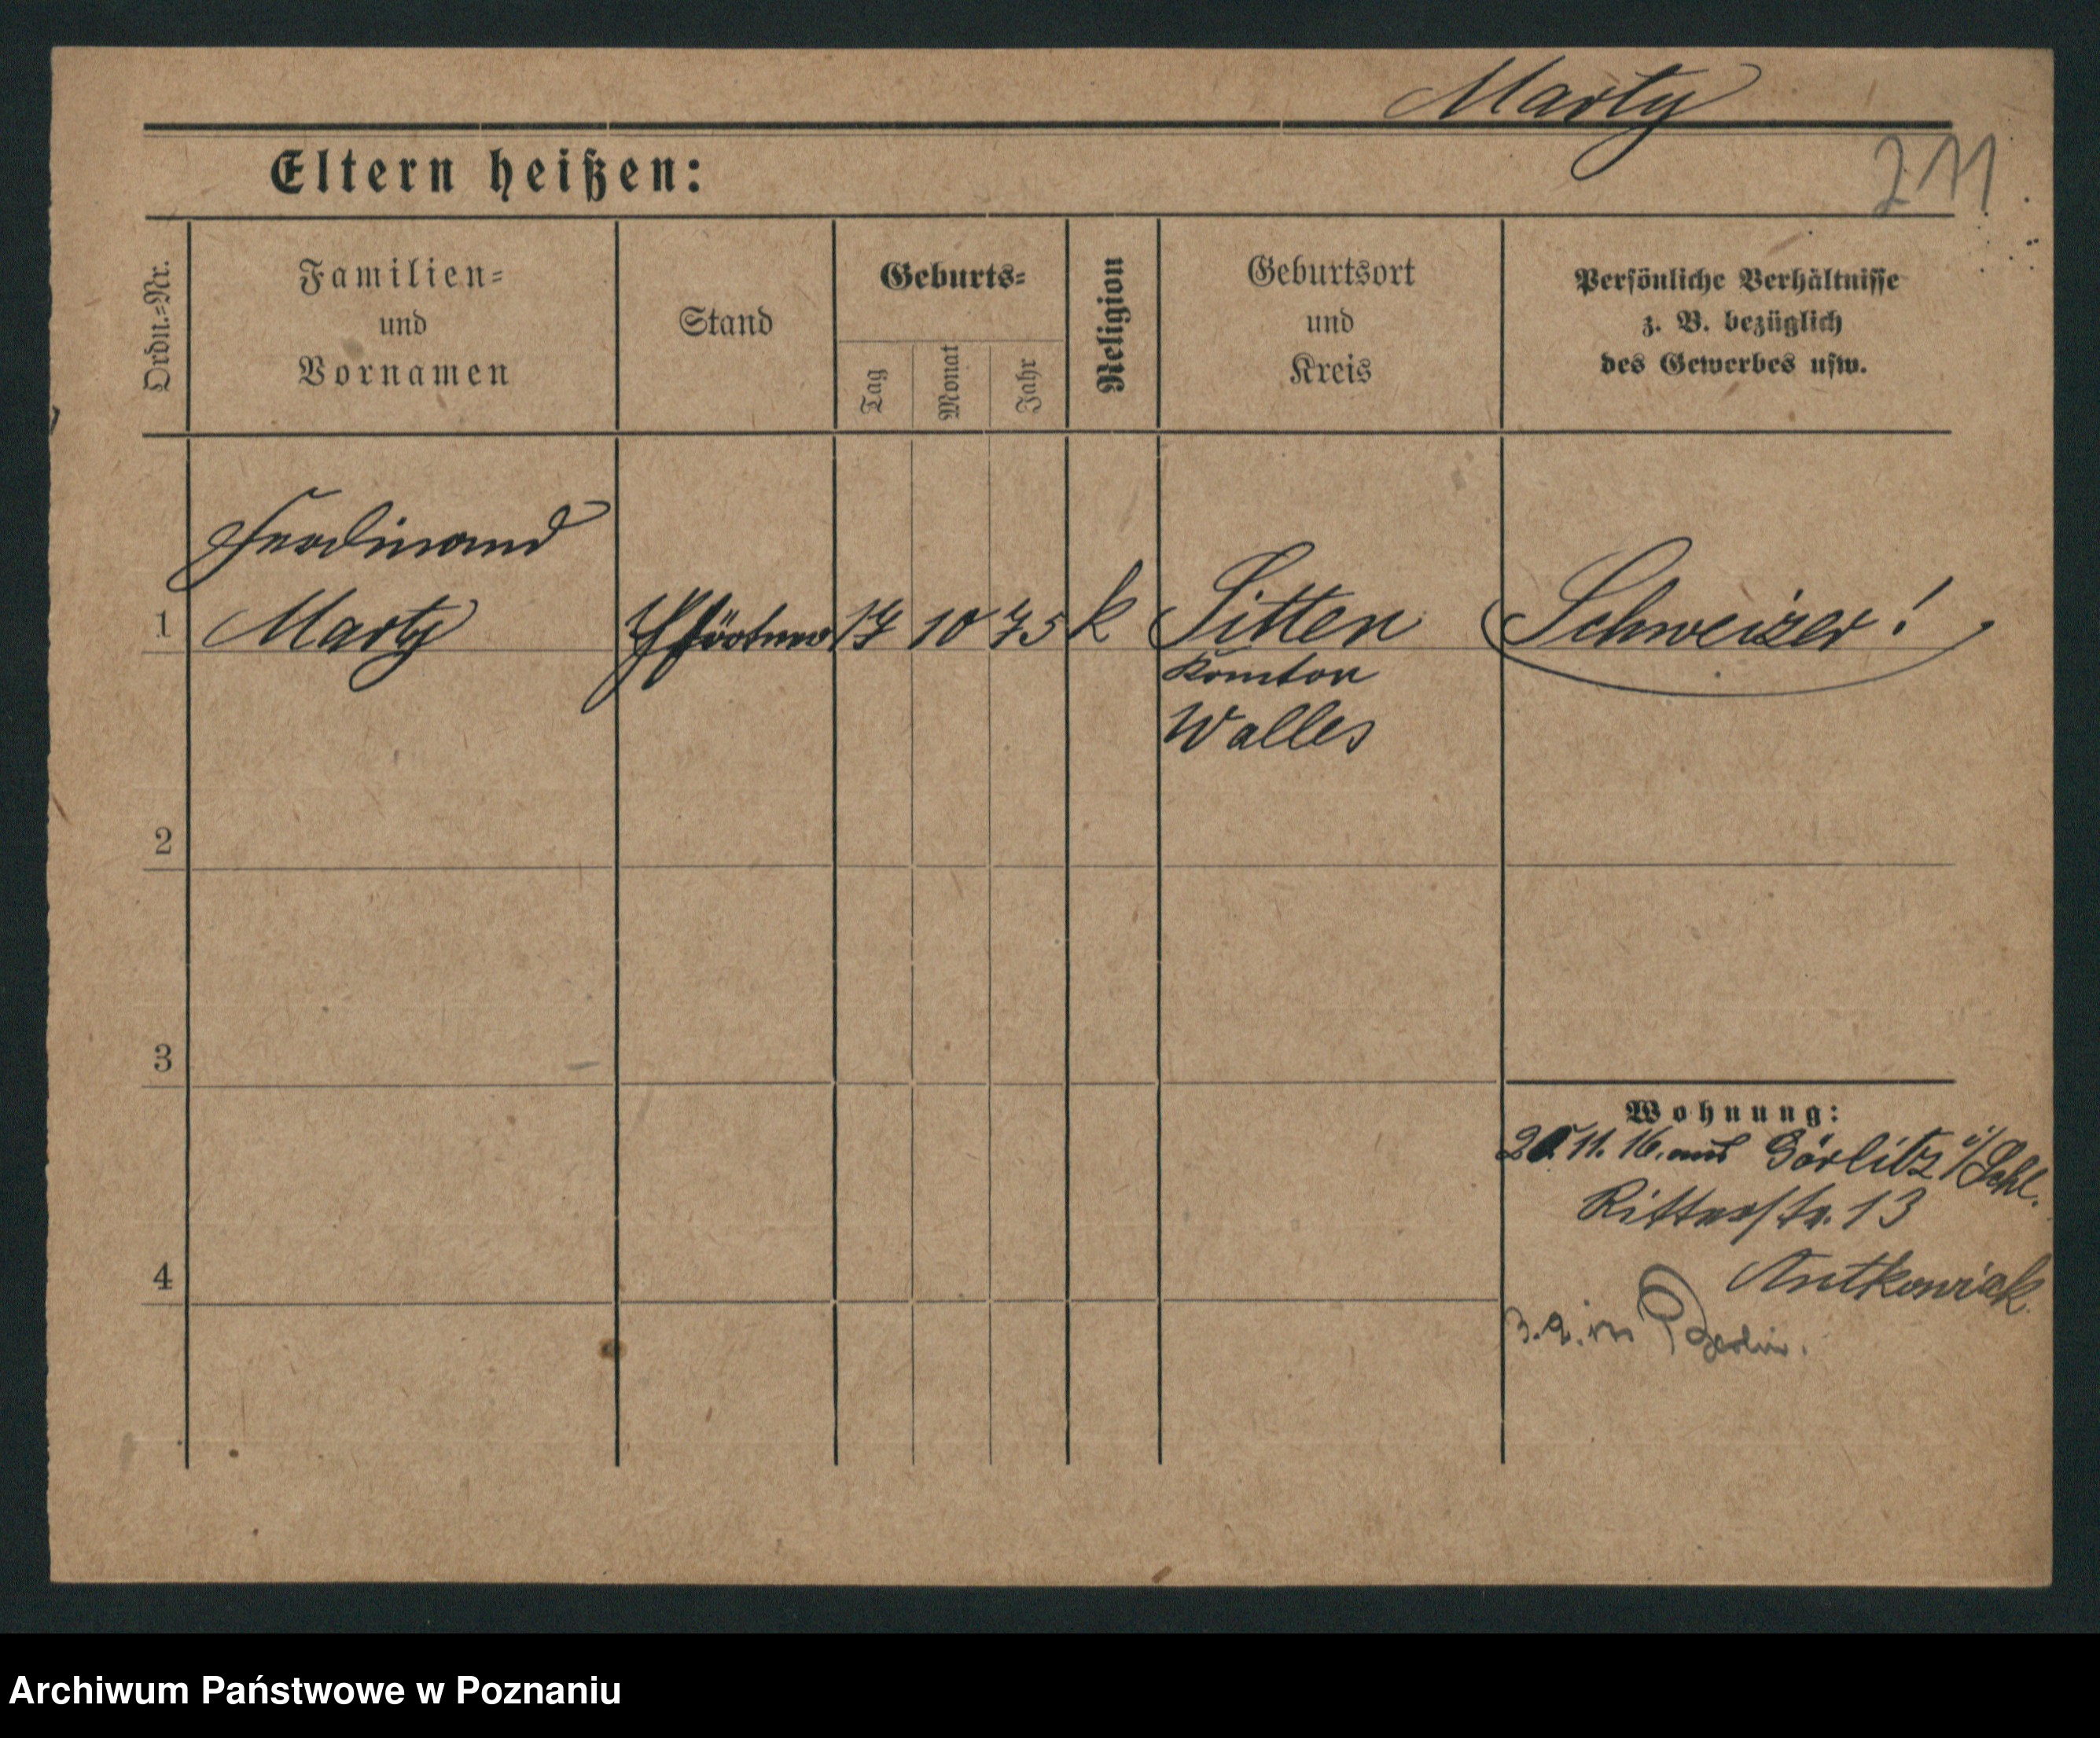 Marty
211
Eltern heißen:
Ordn.=Nr.
Familien=
und
Vornamen
Stand
Geburts=
Tag
Monat
Jahr
Religion
Geburtsort
und
Kreis
Persönliche Verhältnisse
z. B. bezüglich
des Gewerbes usw.
Ferdinand
1 Marty Pförtner 17 10 75 k Sitten Schweizer!
Kanton
Walles
2
3
4
Wohnung:
11. 16. aus Görlitz i/Schl.
Ritterstr. 13
Antkowiak
z. Z. in Berlin.
Archiwum Państwowe w Poznaniu